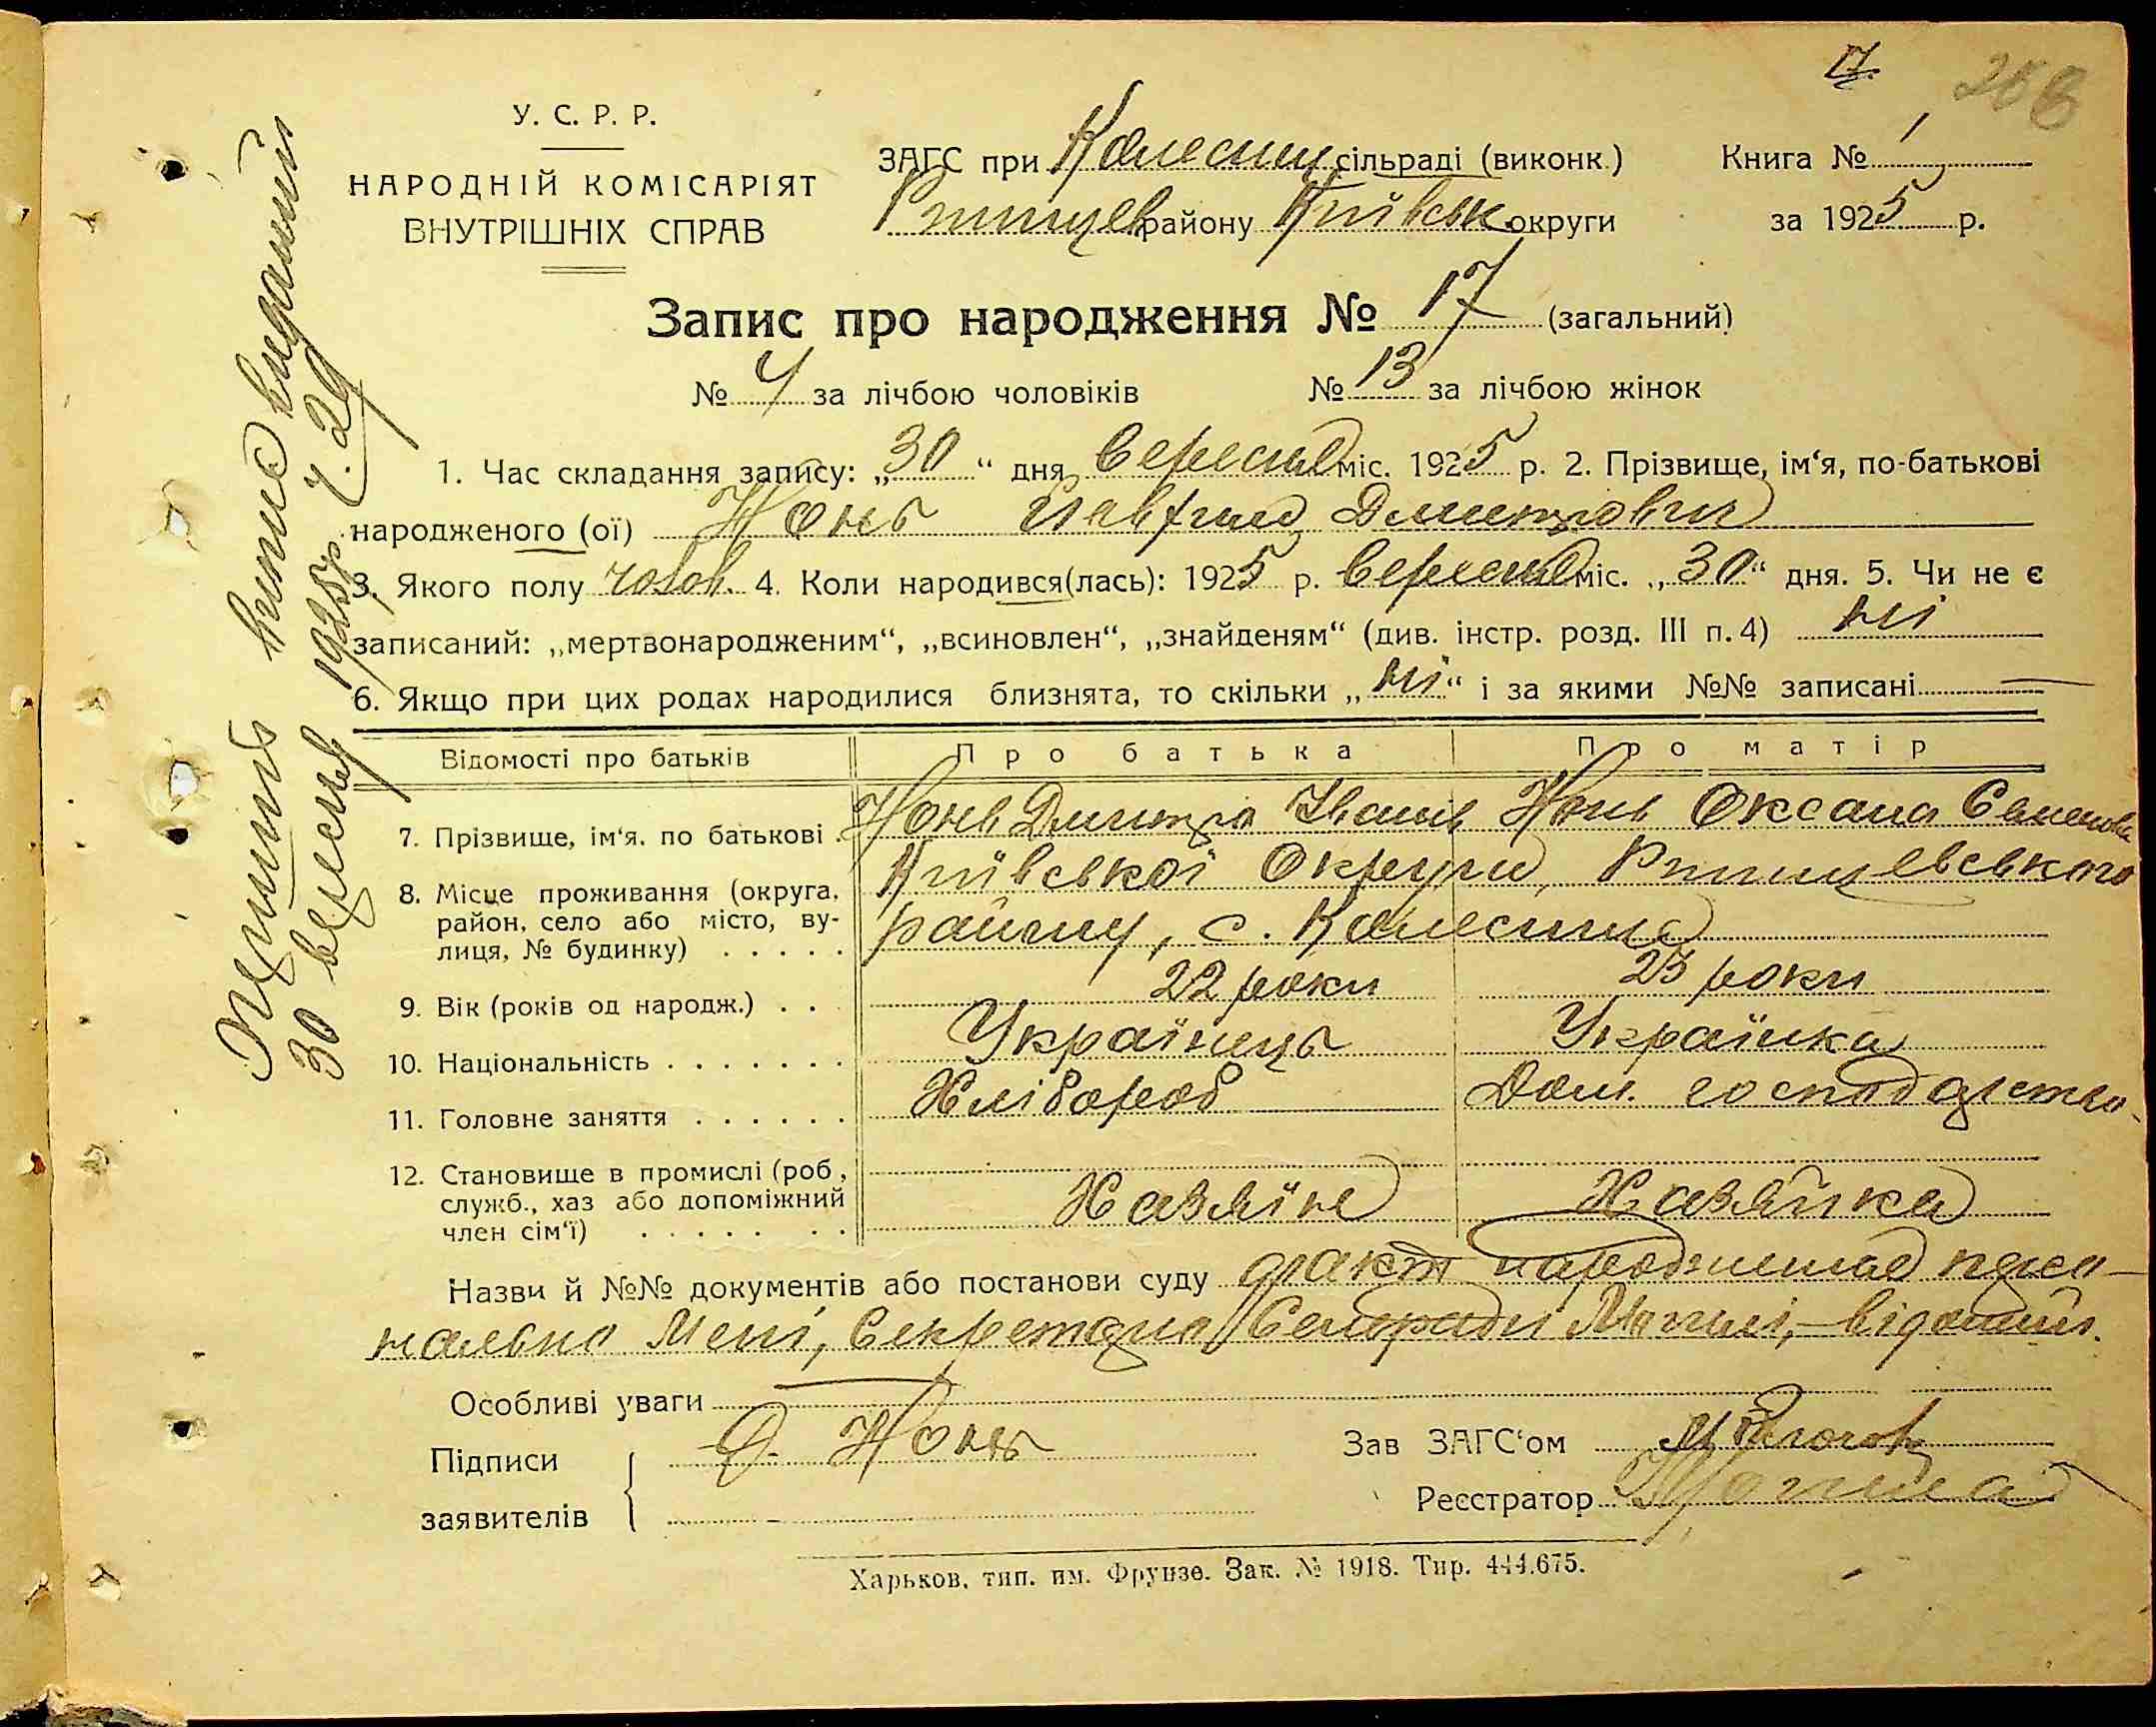 17.
У. С. Р. Р.
НАРОДНІЙ КОМІСАРІЯТ
ВНУТРІШНІХ СПРАВ
ЗАГС при сільраді (виконк.)
району Київськ округи
Книга № 1
за 1925 р.
Запис про народження № 17 (загальний)
№ 4 за лічбою чоловіків № 13 за лічбою жінок
1. Час складання запису: „30“ дня вересня міс. 1925 р. 2. Прізвище, ім‘я, по-батькові
народженого (ої) Конь Дмитрович
3. Якого полу чолов. 4. Коли народився(лась): 1925 р. вересня міс. „30“ дня. 5. Чи не є
записаний: „мертвонародженим“, „всиновлен“, „знайденям“ (див. інстр. розд. III п. 4) ні
6. Якщо при цих родах народилися близнята, то скільки „ні“ і за якими №№ записані —
Відомості про батьків Про батька Про матір
7. Прізвище, ім‘я. по батькові . Конь Дмитро Іванів Конь Оксана Семенова
8. Місце проживання (округа, район, село або місто, вулиця, № будинку) . . . . . Київської Округи,
району, с.
9. Вік (років од народж.) . . . 22 роки 23 роки
10. Національність . . . . . . . Українець Українка
11. Головне заняття . . . . . . Хлібороб Дом. господарство
12. Становище в промислі (роб, служб., хаз або допоміжний член сім‘ї) . . . . . . . Хазяїн Хазяйка
Назви й №№ документів або постанови суду факт народження
мені, Секретарю Сельради
Особливі уваги —
Підписи
заявителів
Д. Конь
Зав ЗАГС‘ом
Реєстратор
Харьков, тип. им. Фрунзе. Зак. № 1918. Тир. 444.675.
Перший витяг виданий
30 вересня 1925 р. ч. 29